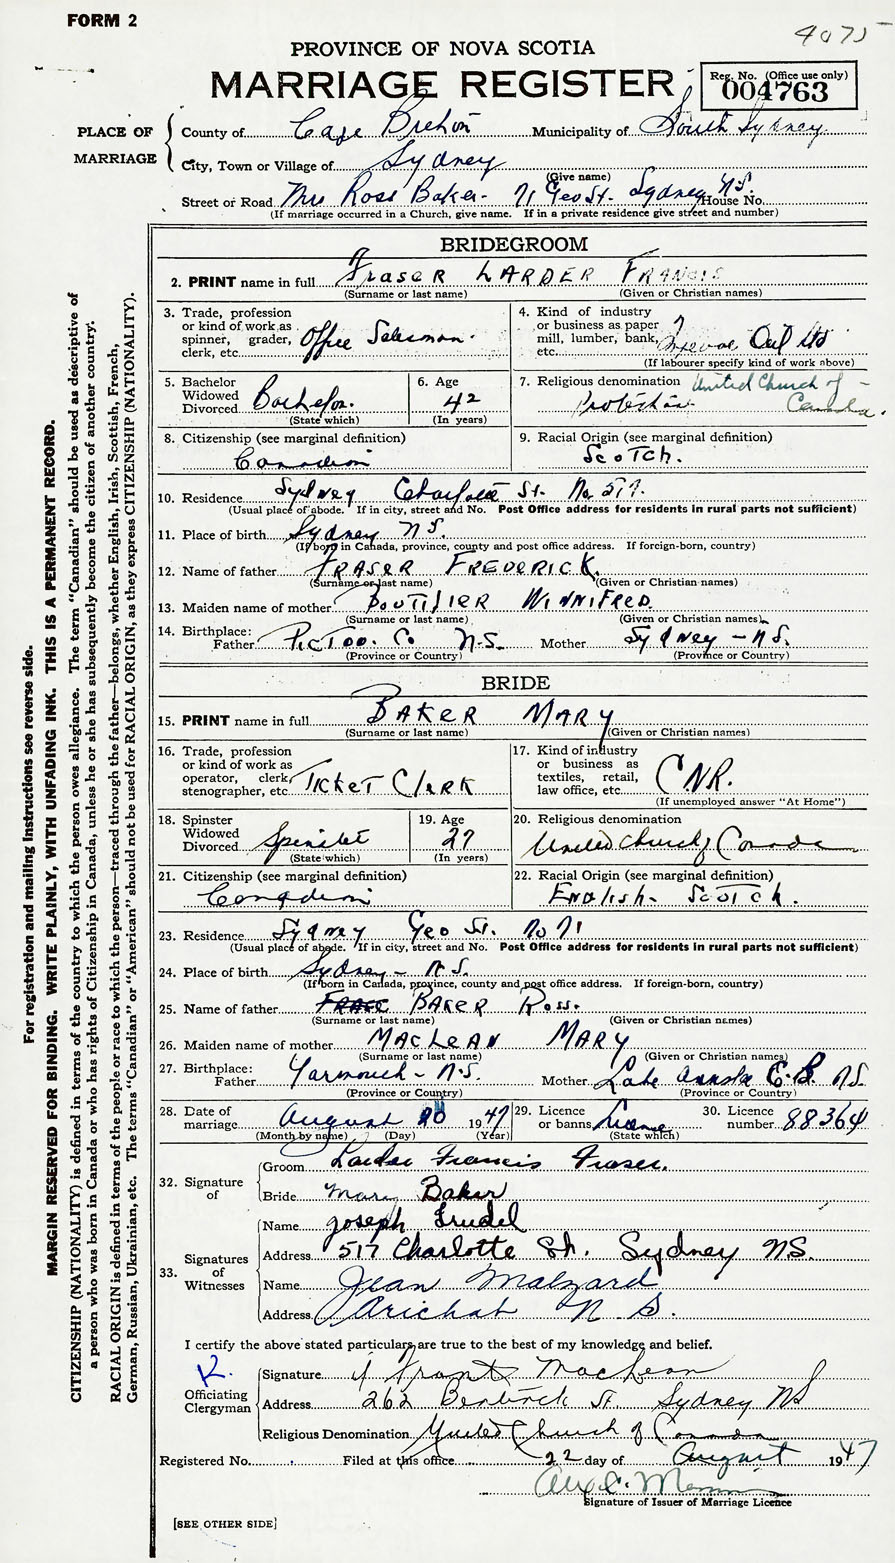 FORM 2
4075
PROVINCE OF NOVA SCOTIA
MARRIAGE REGISTER
Reg. No. (Office use only)
004763
PLACE OF MARRIAGE
County of Cape Breton Municipality of South Sydney
City, Town or Village of Sydney
(Give name)
Street or Road Mrs Ross Baker - 71 Geo St. Sydney N.S. House No.
(If marriage occurred in a Church, give name. If in a private residence give street and number)
BRIDEGROOM
2. PRINT name in full FRASER LARDER FRANCIS
(Surname or last name) (Given or Christian names)
3. Trade, profession or kind of work as spinner, grader, clerk, etc. Office Salesman.
4. Kind of industry or business as paper mill, lumber, bank, etc. Oil Ltd
(If labourer specify kind of work above)
5. Bachelor Widowed Divorced Bachelor.
(State which)
6. Age 42
(In years)
7. Religious denomination United Church of Canada.
Protestant
8. Citizenship (see marginal definition)
Canadian
9. Racial Origin (see marginal definition)
Scotch.
10. Residence Sydney Charlotte St. No 517.
(Usual place of abode. If in city, street and No. Post Office address for residents in rural parts not sufficient)
11. Place of birth Sydney N.S.
(If born in Canada, province, county and post office address. If foreign-born, country)
12. Name of father FRASER FREDERICK.
(Surname or last name) (Given or Christian names)
13. Maiden name of mother BOUTILIER WINNIFRED.
(Surname or last name) (Given or Christian names)
14. Birthplace: Father Pictou. Co N.S. Mother Sydney - N.S.
(Province or Country) (Province or Country)
BRIDE
15. PRINT name in full BAKER MARY
(Surname or last name) (Given or Christian names)
16. Trade, profession or kind of work as operator, clerk, stenographer, etc. TICKET CLERK
17. Kind of industry or business as textiles, retail, law office, etc. CNR.
(If unemployed answer "At Home")
18. Spinster Widowed Divorced Spinster
(State which)
19. Age 27
(In years)
20. Religious denomination
United Church of Canada
21. Citizenship (see marginal definition)
Canadian
22. Racial Origin (see marginal definition)
English - Scotch.
23. Residence Sydney Geo St. No 71
(Usual place of abode. If in city, street and No. Post Office address for residents in rural parts not sufficient)
24. Place of birth Sydney - N.S.
(If born in Canada, province, county and post office address. If foreign-born, country)
25. Name of father BAKER Ross.
(Surname or last name) (Given or Christian names)
26. Maiden name of mother MACLEAN MARY
(Surname or last name) (Given or Christian names)
27. Birthplace: Father Yarmouth - N.S. Mother Lake C.B. N.S.
(Province or Country) (Province or Country)
28. Date of marriage August 20 1947
(Month by name) (Day) (Year)
29. Licence or banns License
(State which)
30. Licence number 88364
32. Signature of
Groom Larder Francis Fraser.
Bride Mary Baker
33. Signatures of Witnesses
Name Joseph Trudel
Address 517 Charlotte St. Sydney N.S.
Name Jean Malzard
Address Arichat N S.
I certify the above stated particulars are true to the best of my knowledge and belief.
Officiating Clergyman
Signature Frank MacLean
Address 262 Bentinck St. Sydney NS
Religious Denomination United Church of Canada
Registered No. Filed at this office 22 day of August 1947
Signature of Issuer of Marriage Licence
[SEE OTHER SIDE]
For registration and mailing instructions see reverse side.
MARGIN RESERVED FOR BINDING. WRITE PLAINLY, WITH UNFADING INK. THIS IS A PERMANENT RECORD.
CITIZENSHIP (NATIONALITY) is defined in terms of the country to which the person owes allegiance. The term "Canadian" should be used as descriptive of
a person who was born in Canada or who has rights of Citizenship in Canada, unless he or she has subsequently become the citizen of another country.
RACIAL ORIGIN is defined in terms of the people or race to which the person—traced through the father—belongs, whether English, Irish, Scottish, French,
German, Russian, Ukrainian, etc. The terms "Canadian" or "American" should not be used for RACIAL ORIGIN, as they express CITIZENSHIP (NATIONALITY).